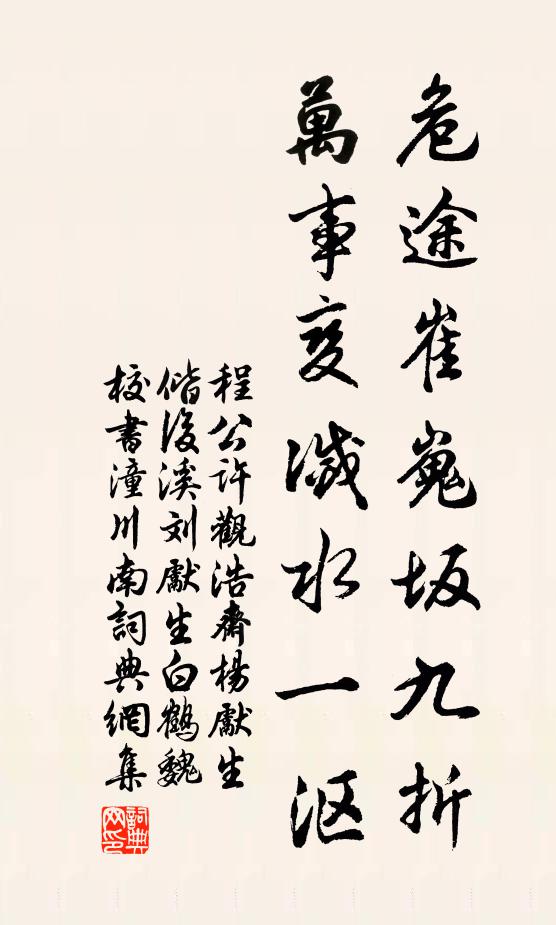 危途崔嵬坂九折
萬事变滅水一沤
程公許觀浩齋楊獻生
偕後溪刘獻生白鶴魏
校書潼川南詞典網集
詞典网印